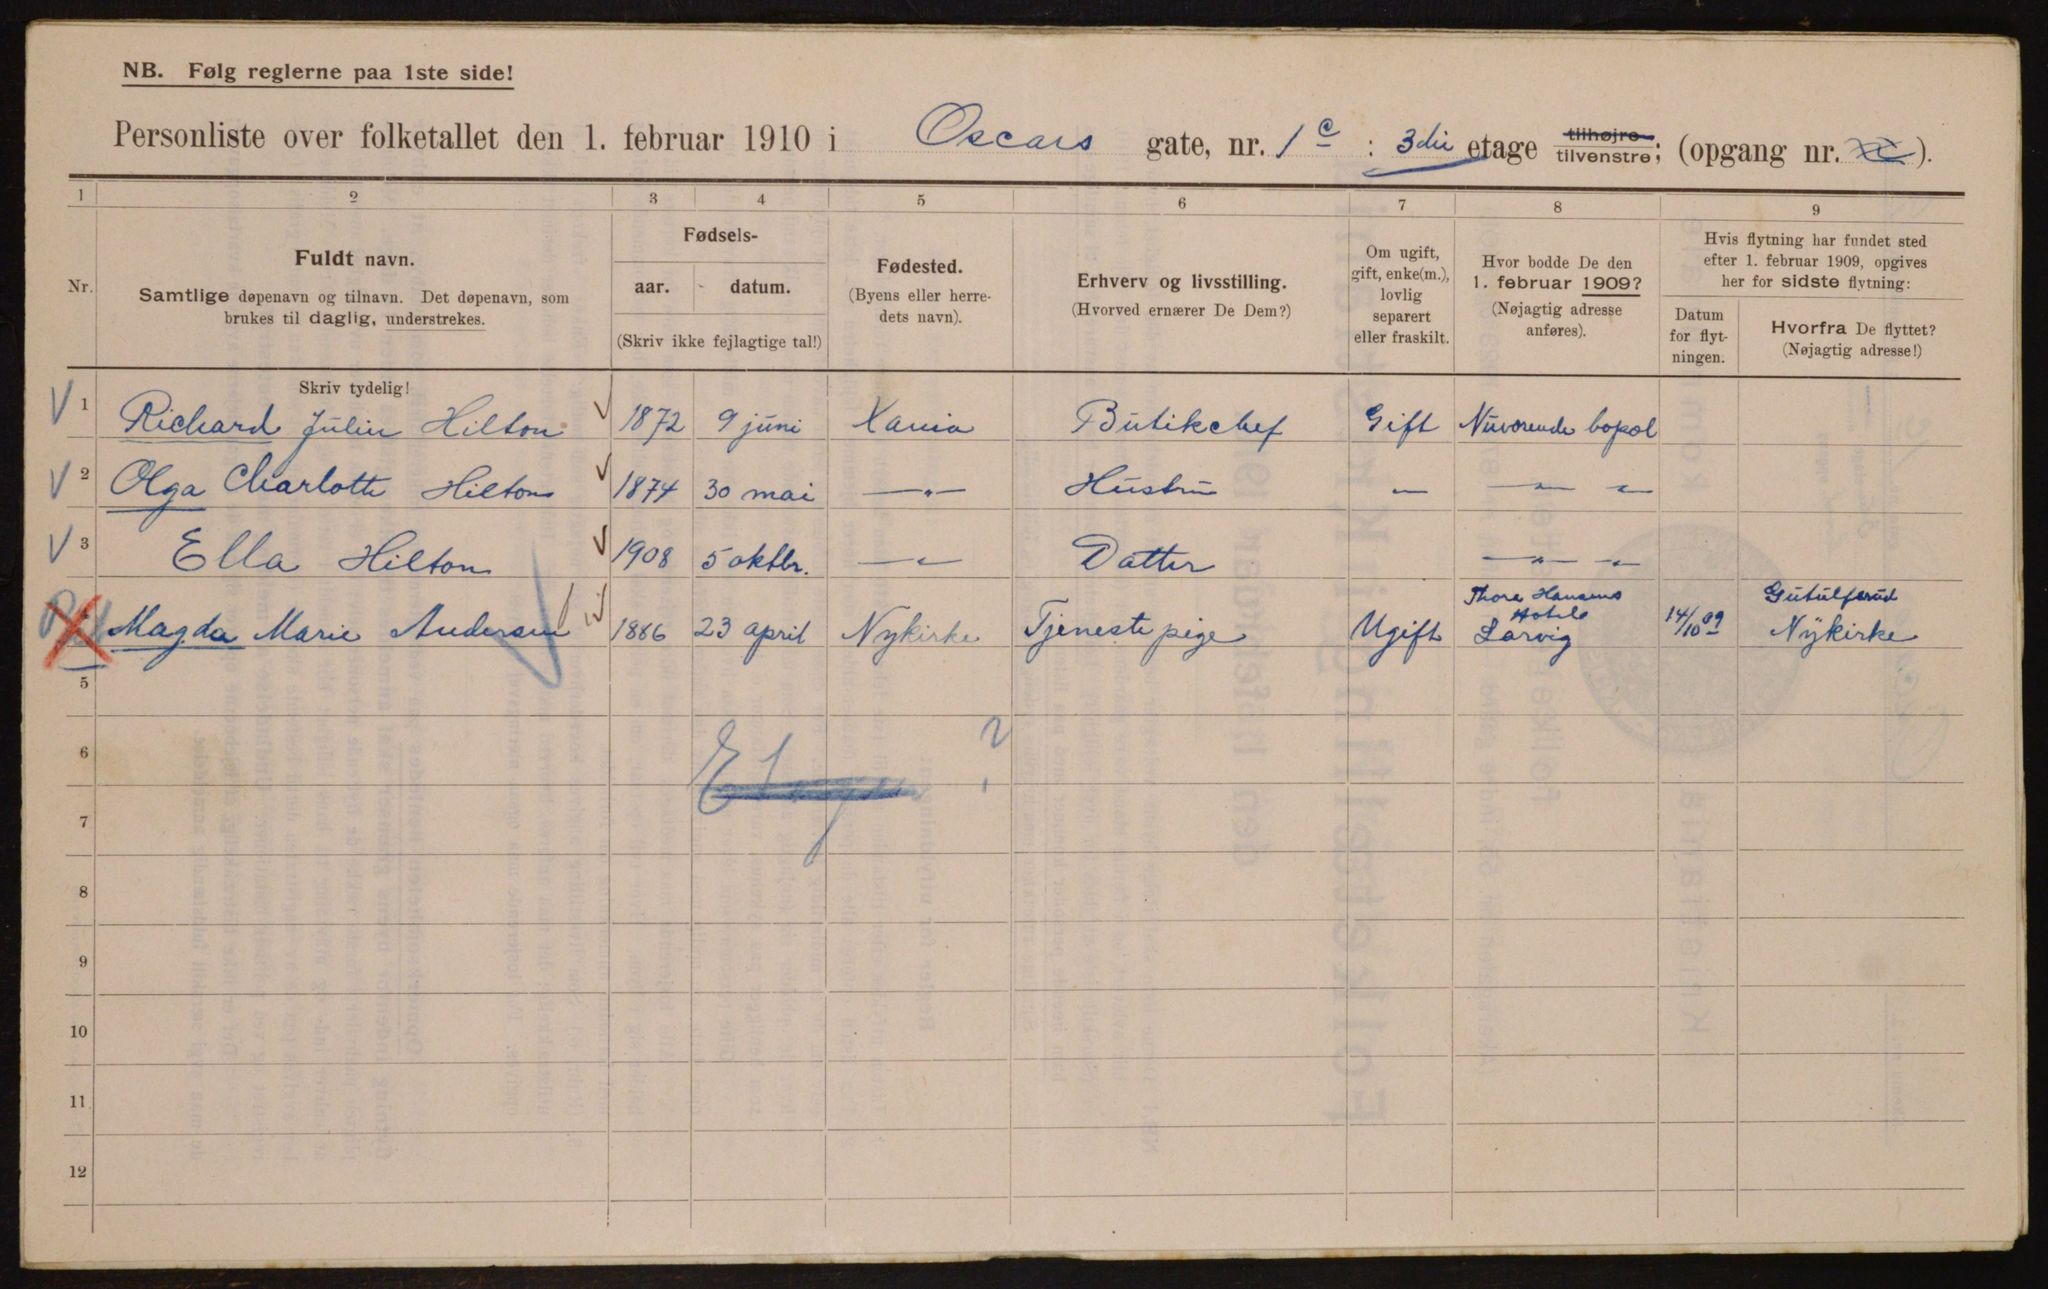 NB. Følg reglerne paa 1ste side!
Personliste over folketallet den 1. februar 1910 i Oscars gate, nr. 1 c : 3die etage tilhøjre tilvenstre; (opgang nr. ).
1 2 3 4 5 6 7 8 9
Nr.
Fuldt navn.
Samtlige døpenavn og tilnavn. Det døpenavn, som
brukes til daglig, understrekes.
Fødsels-
aar. datum.
(Skriv ikke fejlagtige tal!)
Fødested.
(Byens eller herre-
dets navn).
Erhverv og livsstilling.
(Hvorved ernærer De Dem?)
Om ugift,
gift, enke(m.),
lovlig
separert
eller fraskilt.
Hvor bodde De den
1. februar 1909?
(Nøjagtig adresse
anføres).
Hvis flytning har fundet sted
efter 1. februar 1909, opgives
her for sidste flytning:
Datum
for flyt-
ningen.
Hvorfra De flyttet?
(Nøjagtig adresse!)
Skriv tydelig!
1 Richard Julin Hilton 1872 9 juni Xania Butikchef Gift Nuværende bopæl
2 Olga Charlotte Hilton 1874 30 mai —"— Hustru — —"— —"—
3 Ella Hilton 1908 5 oktbr. —"— Datter —"— —"—
Magda Marie Andersen 1886 23 april Nykirke Tjenestepige Ugift Thore Hansens Hotel Larvig 14/10 09 Nykirke
5
6
7
8
9
10
11
12